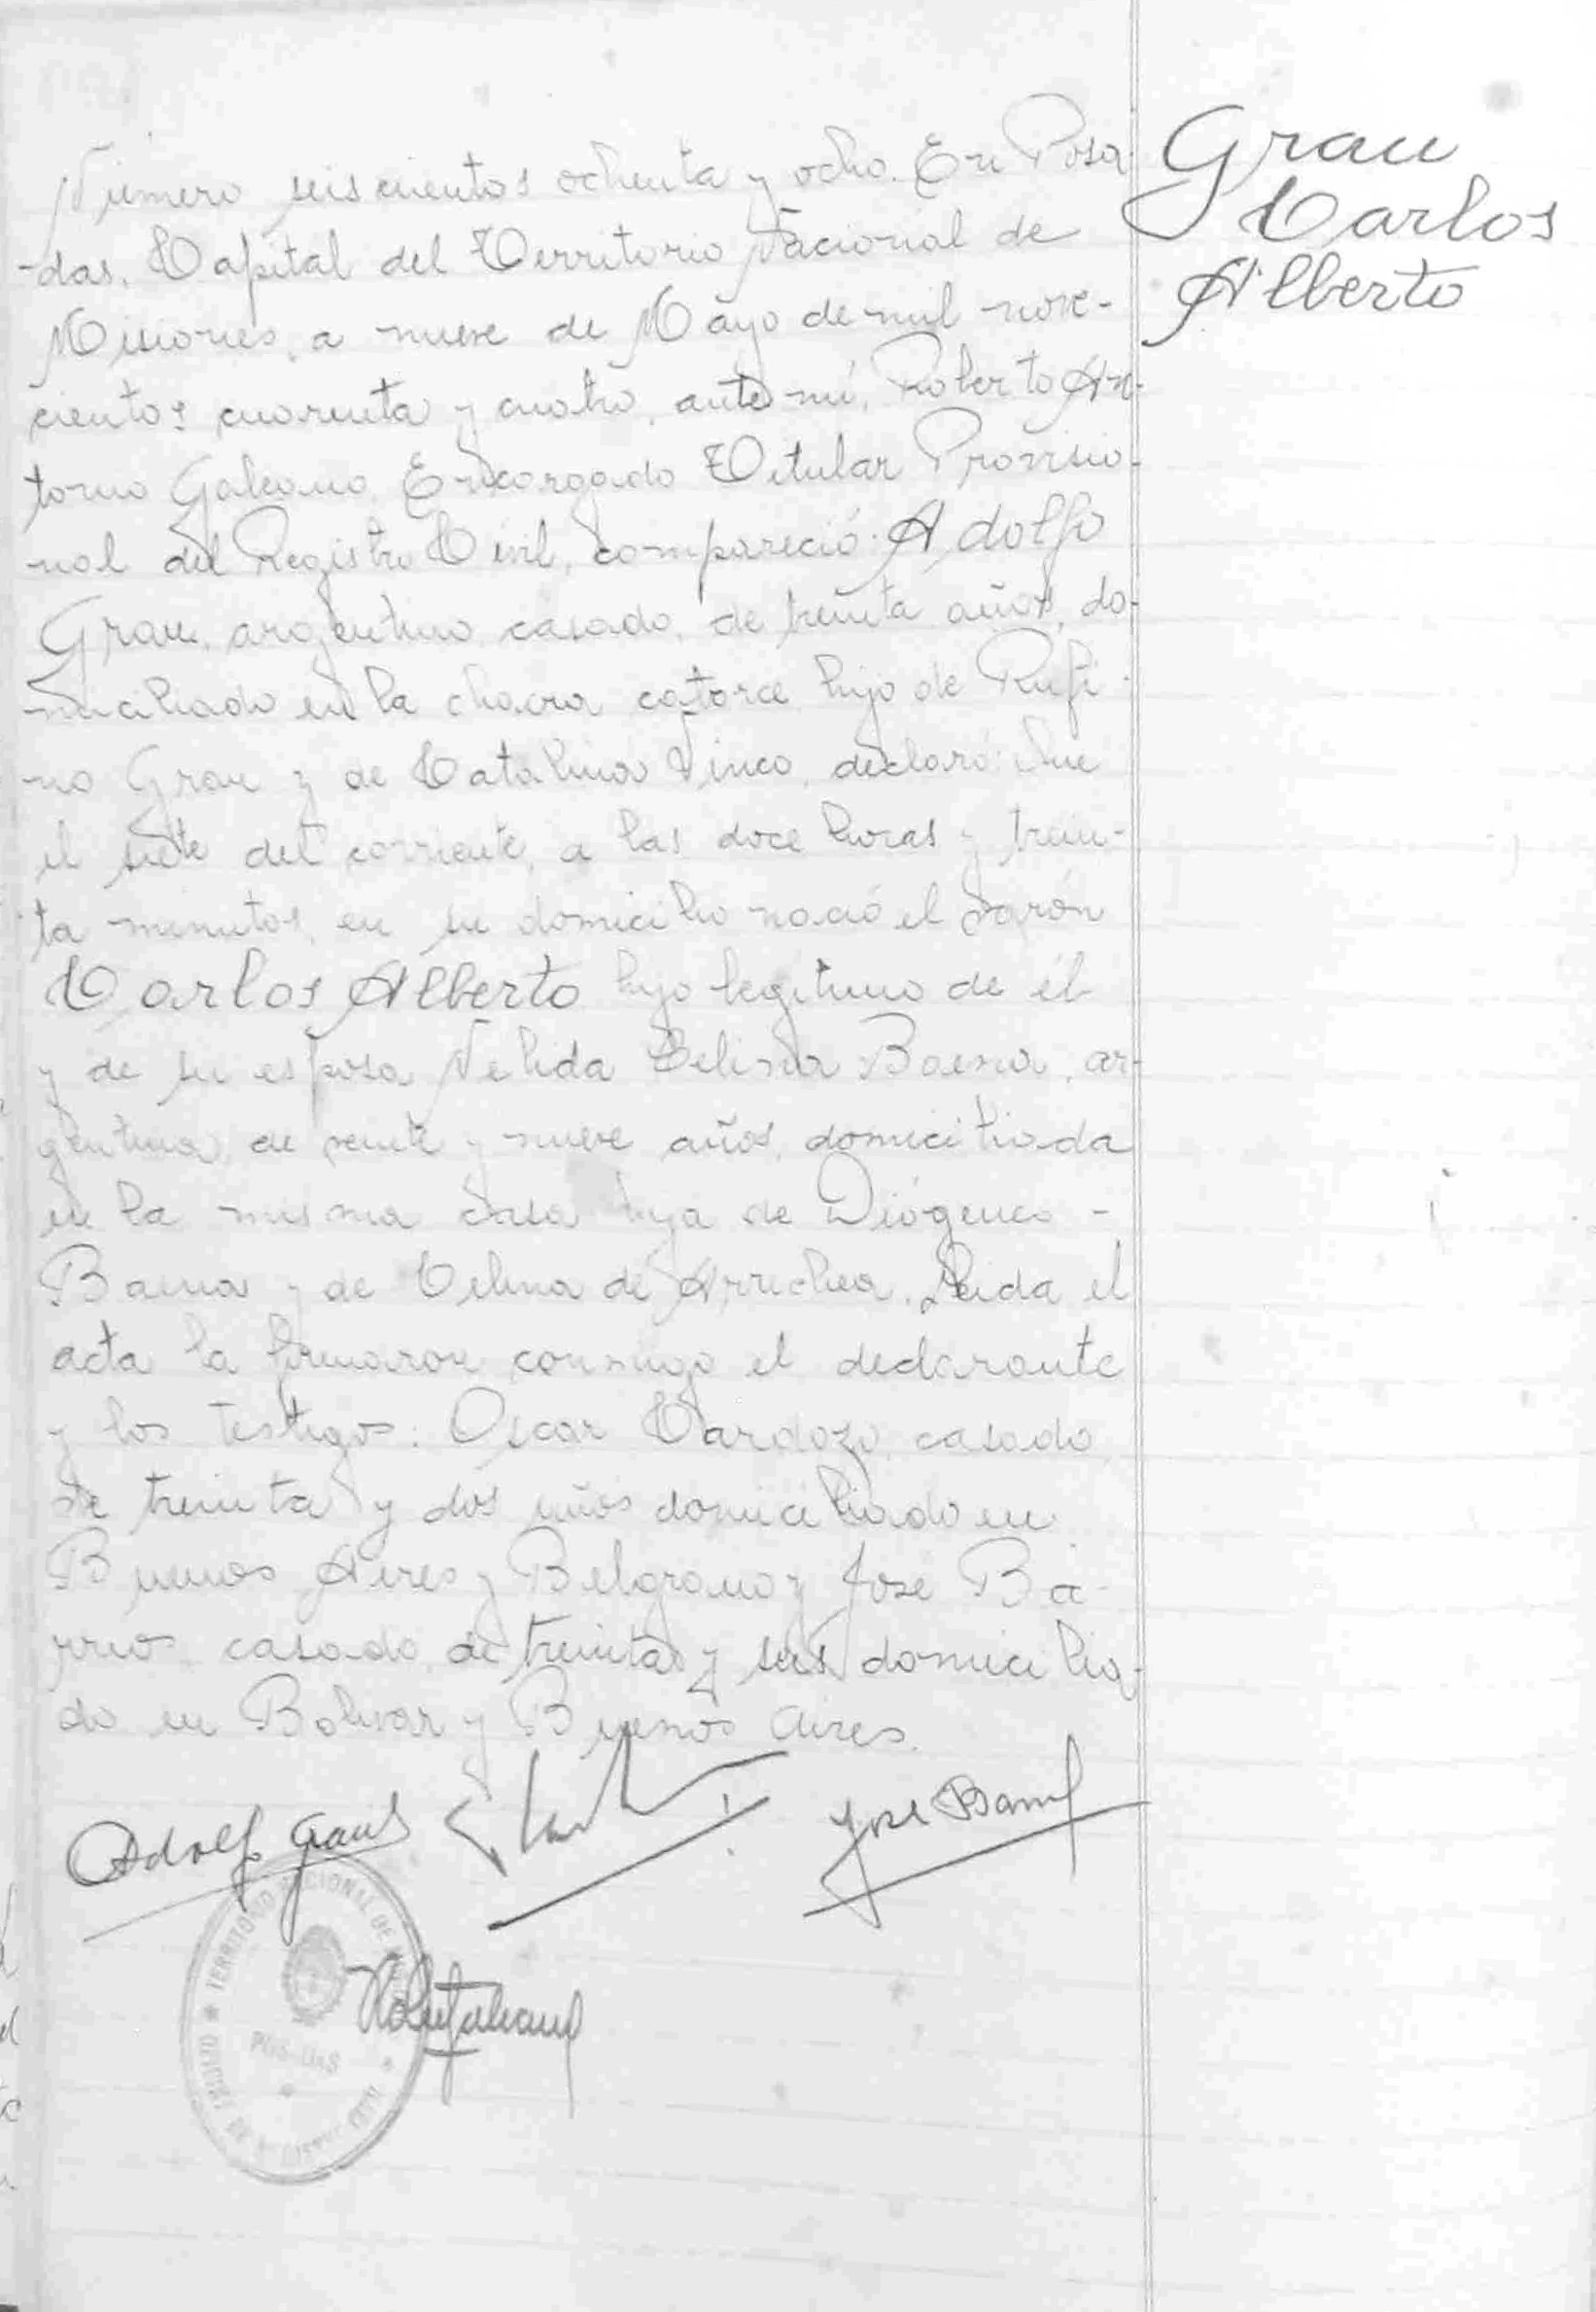 Grau
Carlos
Alberto
Número seiscientos ochenta y ocho. En Posa-
-das, Capital del Territorio Nacional de
Misiones, a nueve de Mayo de mil nove-
cientos cuarenta y cuatro, ante mí, Roberto An-
tonio Galeano, Encargado Titular Provisio-
nal del Registro Civil, compareció: Adolfo
Grau, argentino casado, de treinta años, do-
miciliado en la chacra catorce hijo de Rufi-
no Grau y de Catalina declaró: Que
el siete del corriente, a las doce horas y trein-
ta minutos, en su domicilio nació el varón
Carlos Alberto hijo legítimo de él
y de su esposa Nélida Baena, ar-
gentina, de veinte y nueve años, domiciliada
en la misma casa hija de Diógenes -
Baena y de Celina de Arrechea. Leida el
acta la firmaron conmigo el declarante
y los testigos: Oscar Cardozo, casado
de treinta y dos años domiciliado en
Buenos Aires y Belgrano y José Ba-
rrios casado, de treinta y seis domicilia-
do en Bolivar y Buenos Aires.
Adolfo Grau José Barrios
TERRITORIO NACIONAL DE MISIONES
POSADAS